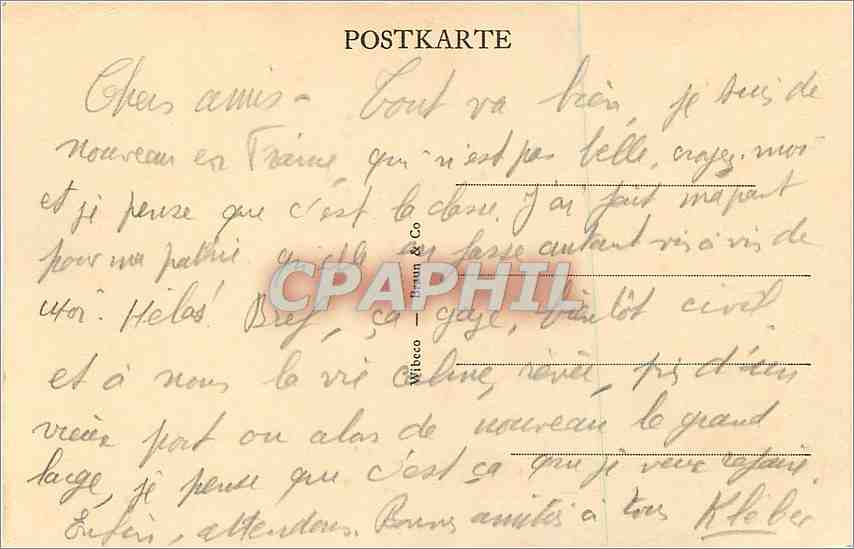 POSTKARTE
Chers amis - Tout va bien, je suis de
nouveau en France, qui n'est pas belle, croyez-moi
et je pense que c'est la classe. J'ai fait ma part
pour ma patrie qu'elle en fasse autant vis à vis de
moi. Hélas! Bref, ça gaze, bientôt civil
et à nous la vie calme, rêvée, près d'un
vieux port ou alors de nouveau le grand
large, je pense que c'est ça que je veux refaire.
Enfin, attendons. Bonnes amitiés à tous Kléber
Wibeco — Braun & Co
CPAPHIL